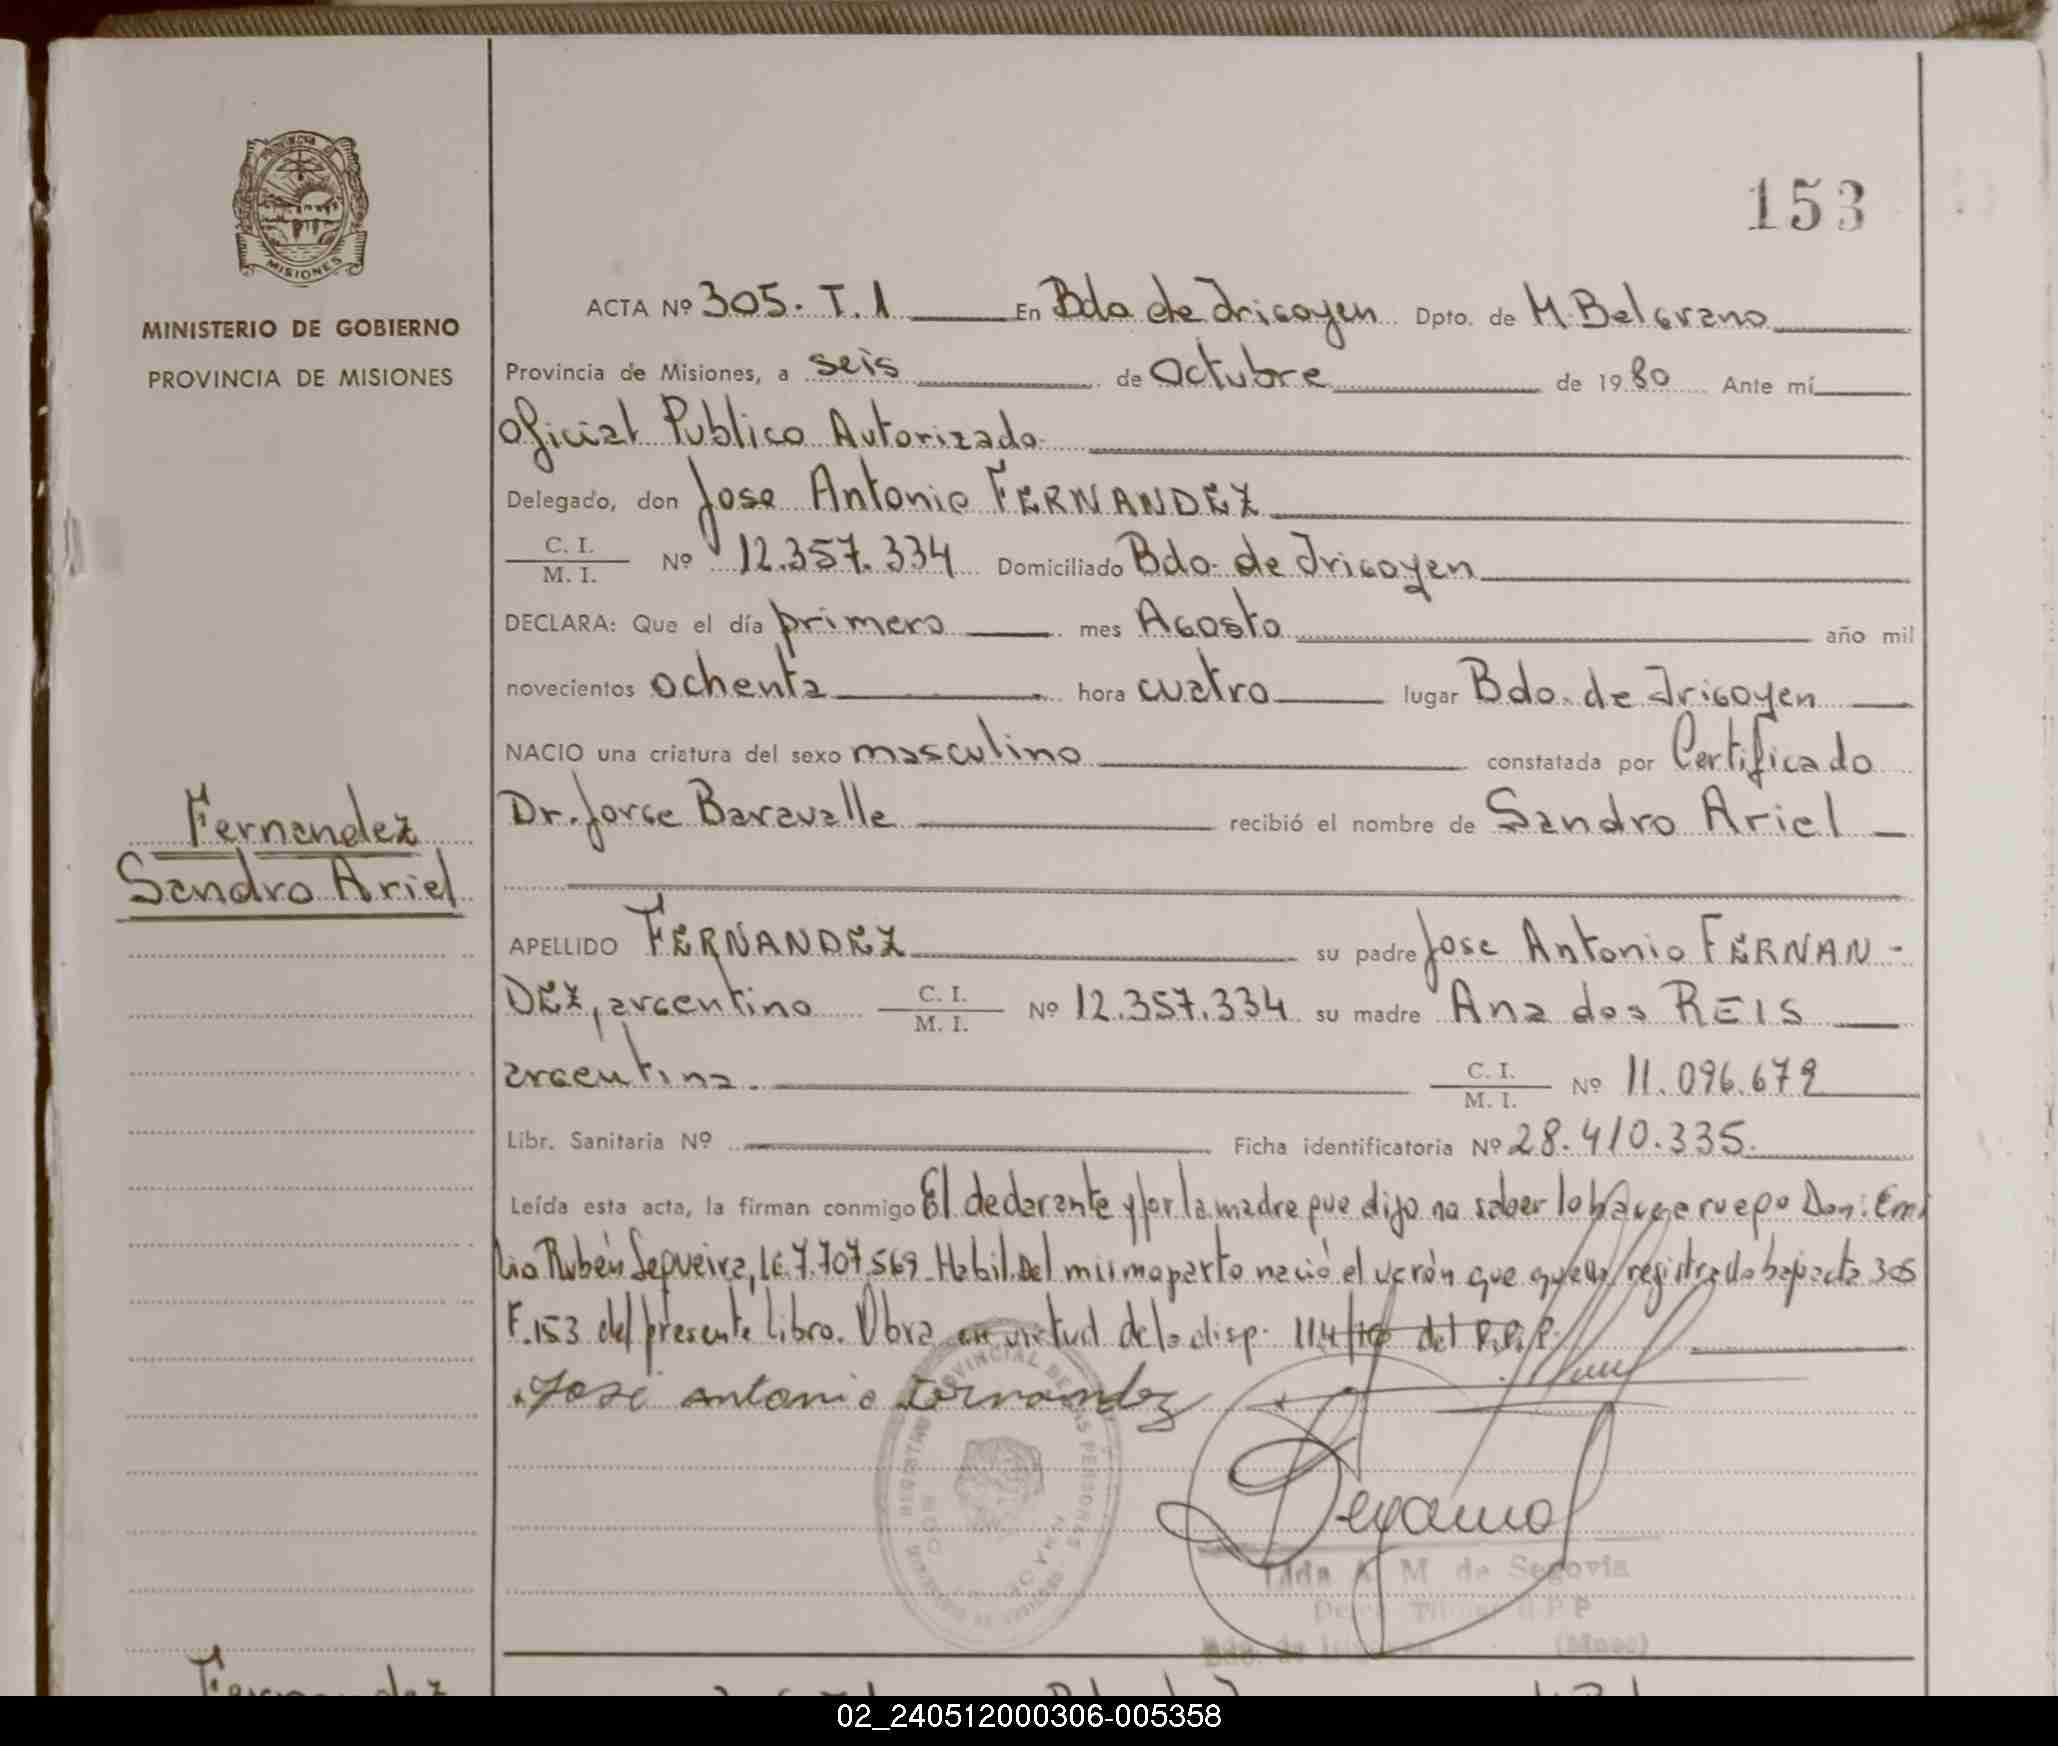 153
MISIONES
MINISTERIO DE GOBIERNO
PROVINCIA DE MISIONES
ACTA Nº 305. T. 1 En Bdo de Irigoyen Dpto. de M. Belgrano
Provincia de Misiones, a seis de Octubre de 1980 Ante mí
Oficial Publico Autorizado
Delegado, don Jose Antonio FERNANDEZ
C. I.
M. I. Nº 12.357.334 Domiciliado Bdo. de Irigoyen
DECLARA: Que el día primero mes Agosto año mil
novecientos ochenta hora cuatro lugar Bdo. de Irigoyen
NACIO una criatura del sexo masculino constatada por Certificado
Dr. Jorge Baravalle recibió el nombre de Sandro Ariel
Fernandez
Sandro Ariel
APELLIDO FERNANDEZ su padre Jose Antonio FERNAN-
DEZ, argentino C. I. M. I. Nº 12.357.334 su madre Ana dos REIS
argentina. C. I. M. I. Nº 11.096.679
Libr. Sanitaria Nº Ficha identificatoria Nº 28.410.335.
Leída esta acta, la firman conmigo El declarante y por la madre que dijo no saber lo hace a ruego Don: Emi
lio Rubén Sequeira, 7.707.569. Habil. Del mismo parto nació el varón que queda registrado bajo acta 305
F. 153 del presente libro. Obra en virtud de la disp. 114 del R.P.P.
José antonio Fernandez
REGISTRO PROVINCIAL DE LAS PERSONAS
A. M. de Segovia
Bdo. de
(Mnes)
Fernandez
02_240512000306-005358